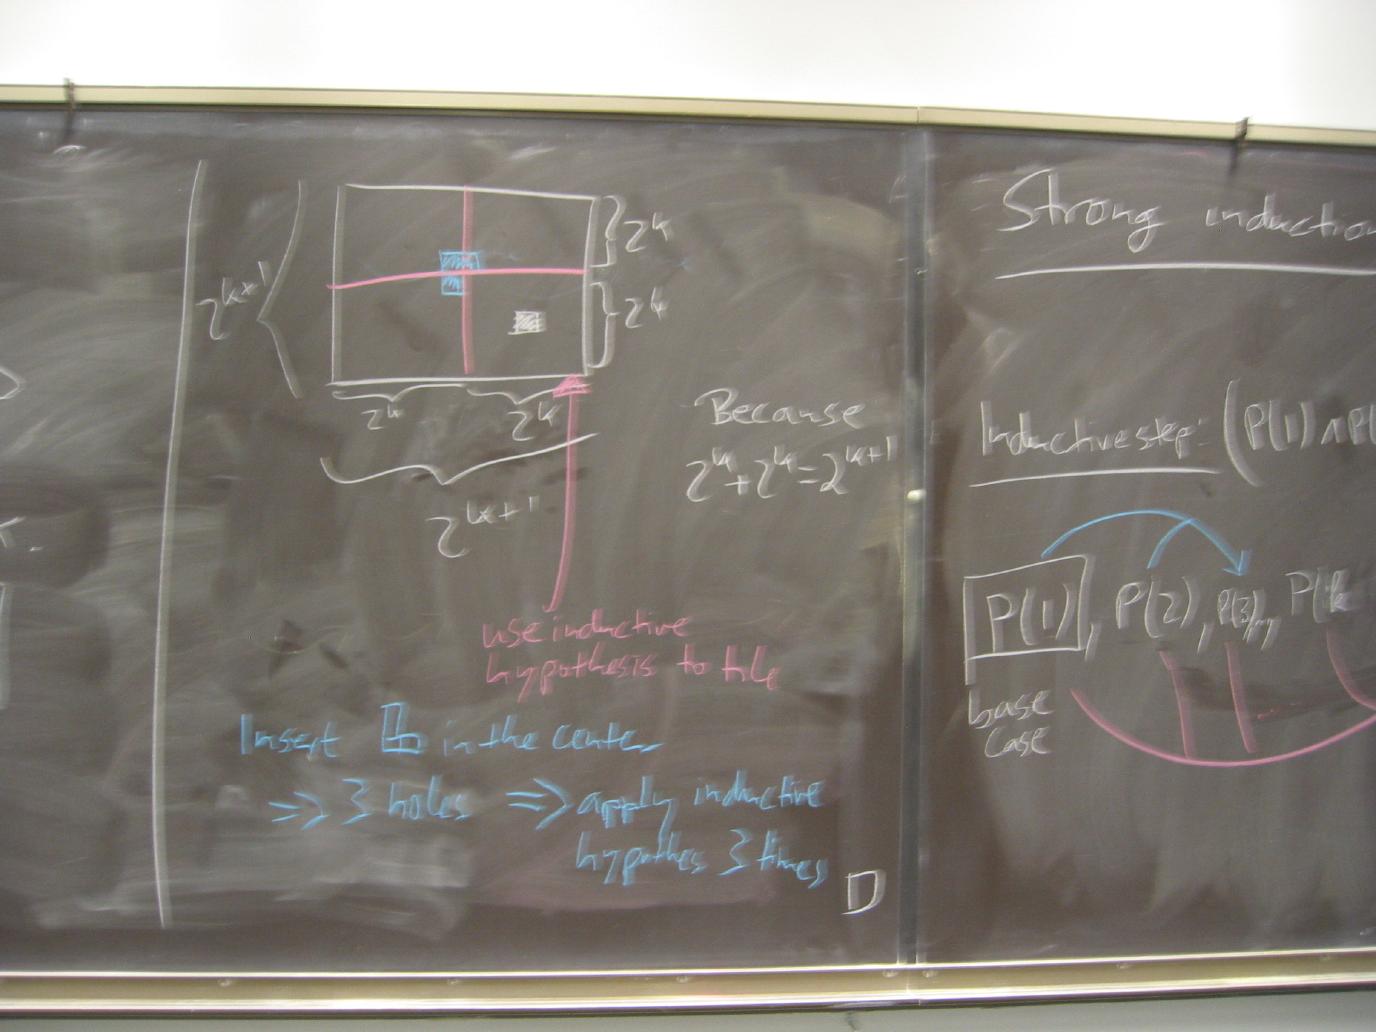 2^{k+1}
2^k
2^k
2^k 2^k
2^{k+1}
Because
2^k+2^k=2^{k+1}
use inductive
hypothesis to tile
Insert in the center
⇒ 3 holes ⇒ apply inductive
hypothes 3 times
Strong induction
Inductive step: (P(1) ∧ P(
P(1), P(2), P(3),
base
case